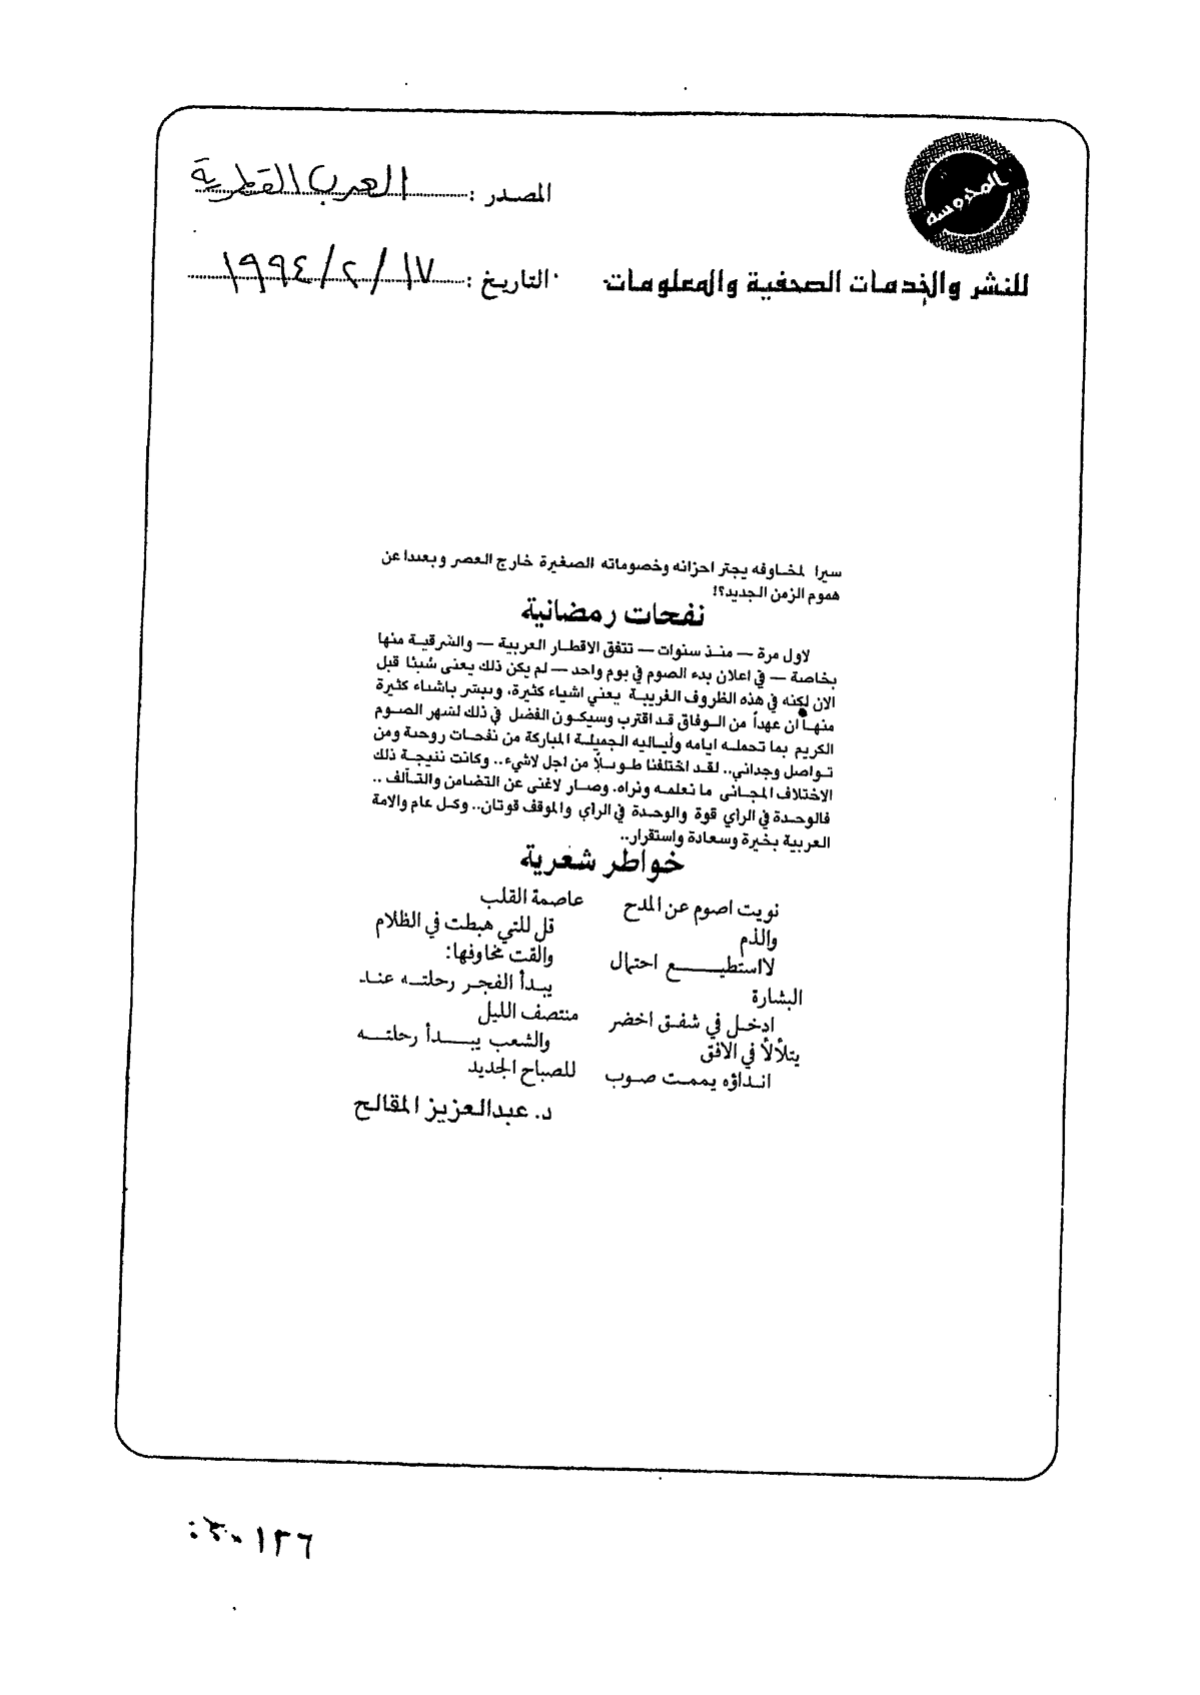 المحروسة
المصدر : العرب القطرية
للنشر والخدمات الصحفية والمعلومات
التاريخ : ١٧ / ٢ / ١٩٩٤
سيرا لمخاوفه يجتر احزانه وخصوماته الصغيرة خارج العصر وبعيدا عن
هموم الزمن الجديد؟!
نفحات رمضانية
لاول مرة — منذ سنوات — تتفق الاقطار العربية — والشرقية منها
بخاصة — في اعلان بدء الصوم في يوم واحد — لم يكن ذلك يعنى شيئا قبل
الان لكنه في هذه الظروف الغريبة يعني اشياء كثيرة، ويبشر باشياء كثيرة
منها ان عهداً من الوفاق قد اقترب وسيكون الفضل في ذلك لشهر الصوم
الكريم بما تحمله ايامه ولياليه الجميلة المباركة من نفحات روحية ومن
تواصل وجداني.. لقد اختلفنا طويلاً من اجل لاشيء.. وكانت نتيجة ذلك
الاختلاف المجانى ما نعلمه ونراه. وصار لاغنى عن التضامن والتآلف ..
فالوحدة في الرأي قوة والوحدة في الرأي والموقف قوتان.. وكل عام والامة
العربية بخيرة وسعادة واستقرار..
خواطر شعرية
نويت اصوم عن المدح
والذم
لااستطيع احتمال
البشارة
ادخل في شفق اخضر
يتلألأ في الافق
انداؤه يممت صوب
عاصمة القلب
قل للتي هبطت في الظلام
والقت مخاوفها:
يبدأ الفجر رحلته عند
منتصف الليل
والشعب يبدأ رحلته
للصباح الجديد
د. عبدالعزيز المقالح